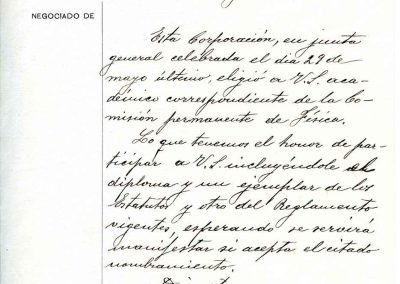 NEGOCIADO DE
Esta Corporación, en junta
general celebrada el dia 29 de
mayo último, eligió a V.S. aca-
démico correspondiente de la Co-
misión permanente de Física.
Lo que tenemos el honor de par-
ticipar a V.S. incluyéndole el
diploma y un ejemplar de los
Estatutos y otro del Reglamento
vigentes, esperando se servirá
manifestar si acepta el citado
nombramiento.